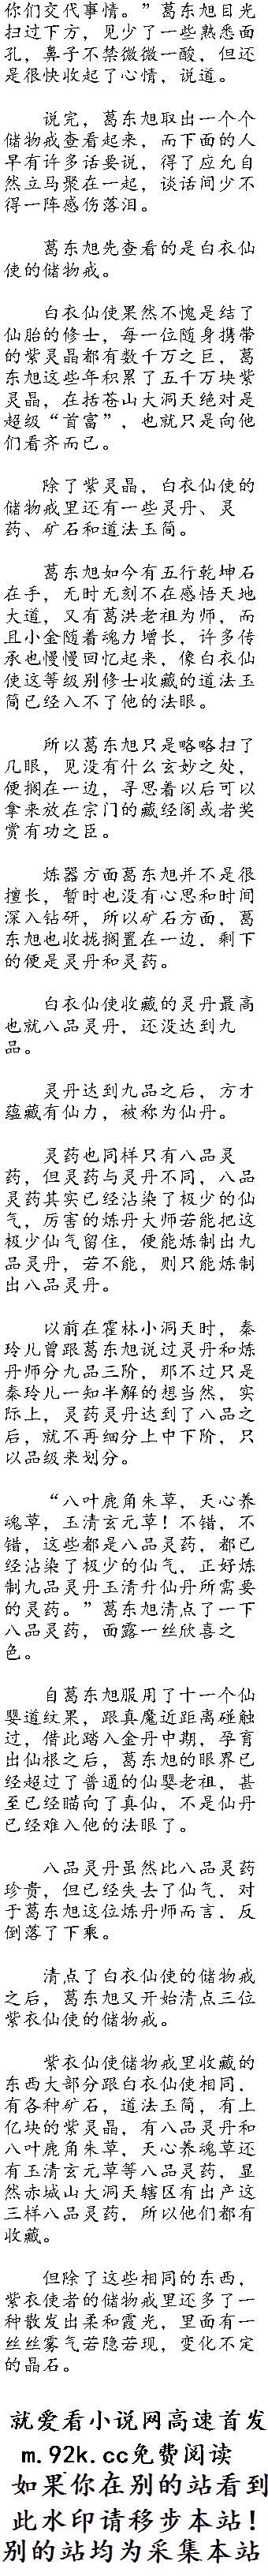 你们交代事情。”葛东旭目光
扫过下方，见少了一些熟悉面
孔，鼻子不禁微微一酸，但还
是很快收起了心情，说道。
说完，葛东旭取出一个个
储物戒查看起来，而下面的人
早有许多话要说，得了应允自
然立马聚在一起，谈话间少不
得一阵感伤落泪。
葛东旭先查看的是白衣仙
使的储物戒。
白衣仙使果然不愧是结了
仙胎的修士，每一位随身携带
的紫灵晶都有数千万之巨，葛
东旭这些年积累了五千万块紫
灵晶，在括苍山大洞天绝对是
超级“首富”，也就只是向他
们看齐而已。
除了紫灵晶，白衣仙使的
储物戒里还有一些灵丹、灵
药、矿石和道法玉简。
葛东旭如今有五行乾坤石
在手，无时无刻不在感悟天地
大道，又有葛洪老祖为师，而
且小金随着魂力增长，许多传
承也慢慢回忆起来，像白衣仙
使这等级别修士收藏的道法玉
简已经入不了他的法眼。
所以葛东旭只是略略扫了
几眼，见没有什么玄妙之处，
便搁在一边，寻思着以后可以
拿来放在宗门的藏经阁或者奖
赏有功之臣。
炼器方面葛东旭并不是很
擅长，暂时也没有心思和时间
深入钻研，所以矿石方面，葛
东旭也收拢搁置在一边，剩下
的便是灵丹和灵药。
白衣仙使收藏的灵丹最高
也就八品灵丹，还没达到九
品。
灵丹达到九品之后，方才
蕴藏有仙力，被称为仙丹。
灵药也同样只有八品灵
药，但灵药与灵丹不同，八品
灵药其实已经沾染了极少的仙
气，厉害的炼丹大师若能把这
极少仙气留住，便能炼制出九
品灵丹，若不能，则只能炼制
出八品灵丹。
以前在霍林小洞天时，秦
玲儿曾跟葛东旭说过灵丹和炼
丹师分九品三阶，那不过只是
秦玲儿一知半解的想当然，实
际上，灵药灵丹达到了八品之
后，就不再细分上中下阶，只
以品级来划分。
“八叶鹿角朱草，天心养
魂草，玉清玄元草！不错，不
错，这些都是八品灵药，都已
经沾染了极少的仙气，正好炼
制九品灵丹玉清升仙丹所需要
的灵药。”葛东旭清点了一下
八品灵药，面露一丝欣喜之
色。
自葛东旭服用了十一个仙
婴道纹果，跟真魔近距离碰触
过，借此踏入金丹中期，孕育
出仙根之后，葛东旭的眼界已
经超过了普通的仙婴老祖，甚
至已经瞄向了真仙，不是仙丹
已经难入他的法眼了。
八品灵丹虽然比八品灵药
珍贵，但已经失去了仙气，对
于葛东旭这位炼丹师而言，反
倒落了下乘。
清点了白衣仙使的储物戒
之后，葛东旭又开始清点三位
紫衣仙使的储物戒。
紫衣仙使储物戒里收藏的
东西大部分跟白衣仙使相同，
有各种矿石，道法玉简，有上
亿块的紫灵晶，有八品灵丹和
八叶鹿角朱草，天心养魂草还
有玉清玄元草等八品灵药，显
然赤城山大洞天辖区有出产这
三样八品灵药，所以他们都有
收藏。
但除了这些相同的东西，
紫衣使者的储物戒里还多了一
种散发出柔和霞光，里面有一
丝丝雾气若隐若现，变化不定
的晶石。
就爱看小说网高速首发
m.92k.cc免费阅读
如果你在别的站看到
此水印请移步本站！
别的站均为采集本站